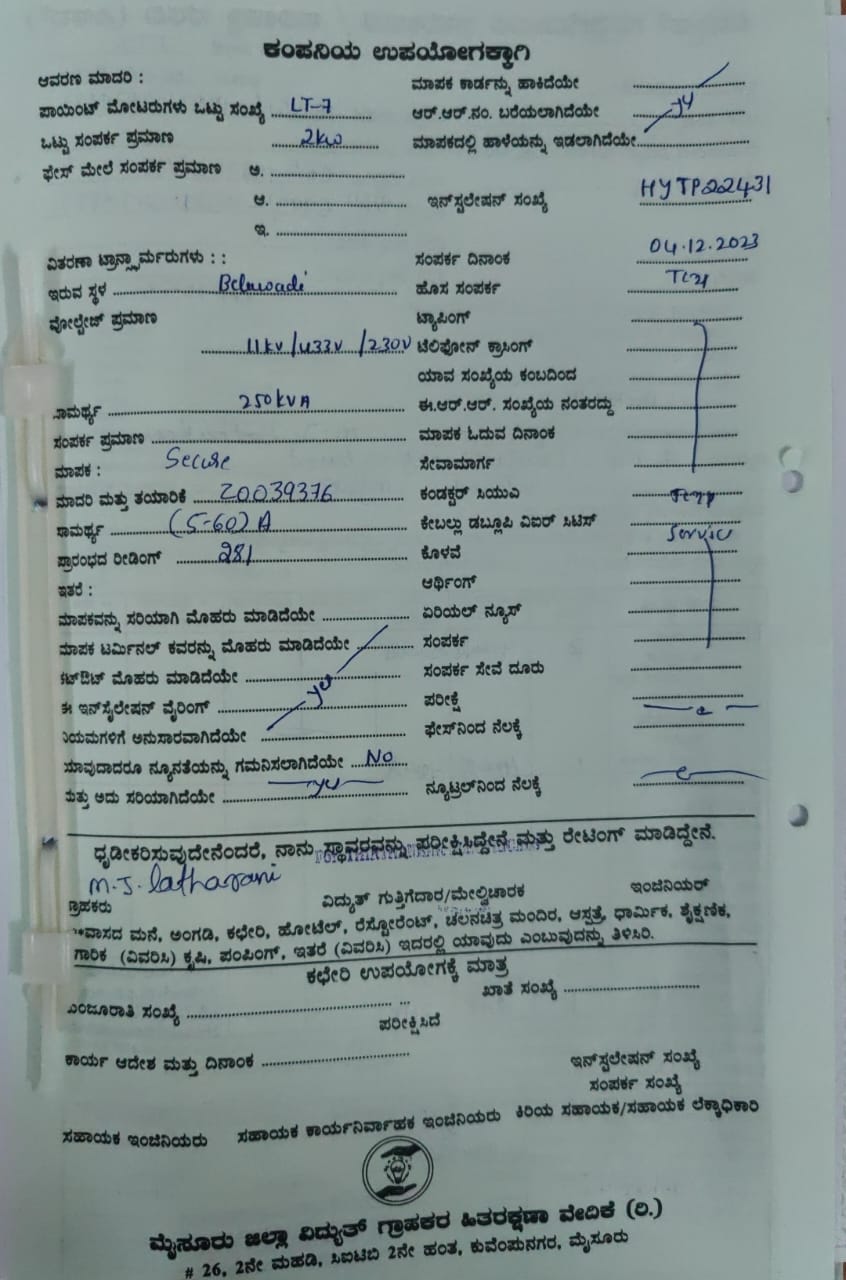 ಕಂಪನಿಯ ಉಪಯೋಗಕ್ಕಾಗಿ
ಆವರಣ ಮಾದರಿ : ಮಾಪಕ ಕಾರ್ಡನ್ನು ಹಾಕಿದೆಯೇ
ಪಾಯಿಂಟ್ ಮೋಟರುಗಳು ಒಟ್ಟು ಸಂಖ್ಯೆ LT-7 ಆರ್.ಆರ್.ನಂ. ಬರೆಯಲಾಗಿದೆಯೇ
ಒಟ್ಟು ಸಂಪರ್ಕ ಪ್ರಮಾಣ 2kw ಮಾಪಕದಲ್ಲಿ ಹಾಳೆಯನ್ನು ಇಡಲಾಗಿದೆಯೇ
ಫೇಸ್ ಮೇಲೆ ಸಂಪರ್ಕ ಪ್ರಮಾಣ ಅ.
ಆ. ಇನ್‌ಸ್ಟಲೇಷನ್ ಸಂಖ್ಯೆ HYTP22431
ಇ.
ವಿತರಣಾ ಟ್ರಾನ್ಸ್ಫಾರ್ಮರುಗಳು : : ಸಂಪರ್ಕ ದಿನಾಂಕ 04.12.2023
ಇರುವ ಸ್ಥಳ Belawadi ಹೊಸ ಸಂಪರ್ಕ
ವೋಲ್ಟೇಜ್ ಪ್ರಮಾಣ ಟ್ಯಾಪಿಂಗ್
11kv/433v/230v ಟೆಲಿಫೋನ್ ಕ್ರಾಸಿಂಗ್
ಯಾವ ಸಂಖ್ಯೆಯ ಕಂಬದಿಂದ
ಸಾಮರ್ಥ್ಯ 250kVA ಈ.ಆರ್.ಆರ್. ಸಂಖ್ಯೆಯ ನಂತರದ್ದು
ಸಂಪರ್ಕ ಪ್ರಮಾಣ ಮಾಪಕ ಓದುವ ದಿನಾಂಕ
ಮಾಪಕ : Secure ಸೇವಾಮಾರ್ಗ
ಮಾದರಿ ಮತ್ತು ತಯಾರಿಕೆ 20039376 ಕಂಡಕ್ಟರ್ ಸಿಯುವಿ
ಸಾಮರ್ಥ್ಯ (5-60)A ಕೇಬಲ್ಲು ಡಬ್ಲೂಪಿ ವಿಐರ್ ಸಿಟಿಸ್
ಪ್ರಾರಂಭದ ರೀಡಿಂಗ್ 281 ಕೊಳವೆ Service
ಇತರೆ : ಆರ್ಥಿಂಗ್
ಮಾಪಕವನ್ನು ಸರಿಯಾಗಿ ಮೊಹರು ಮಾಡಿದೆಯೇ ಏರಿಯಲ್ ನ್ಯೂಸ್
ಮಾಪಕ ಟರ್ಮಿನಲ್ ಕವರನ್ನು ಮೊಹರು ಮಾಡಿದೆಯೇ ಸಂಪರ್ಕ
ಕಟ್‌ಔಟ್ ಮೊಹರು ಮಾಡಿದೆಯೇ ಸಂಪರ್ಕ ಸೇವೆ ದೂರು
ಈ ಇನ್‌ಸೈಲೇಷನ್ ವೈರಿಂಗ್ yes ಪರೀಕ್ಷೆ
ನಿಯಮಗಳಿಗೆ ಅನುಸಾರವಾಗಿದೆಯೇ ಫೇಸ್‌ನಿಂದ ನೆಲಕ್ಕೆ
ಯಾವುದಾದರೂ ನ್ಯೂನತೆಯನ್ನು ಗಮನಿಸಲಾಗಿದೆಯೇ No
ಮತ್ತು ಅದು ಸರಿಯಾಗಿದೆಯೇ yes ನ್ಯೂಟ್ರಲ್‌ನಿಂದ ನೆಲಕ್ಕೆ
ಧೃಡೀಕರಿಸುವುದೇನೆಂದರೆ, ನಾನು ಸ್ಥಾವರವನ್ನು ಪರೀಕ್ಷಿಸಿದ್ದೇನೆ ಮತ್ತು ರೇಟಿಂಗ್ ಮಾಡಿದ್ದೇನೆ.
M.J. latharani
ಗ್ರಾಹಕರು ವಿದ್ಯುತ್ ಗುತ್ತಿಗೆದಾರ/ಮೇಲ್ವಿಚಾರಕ ಇಂಜಿನಿಯರ್
ವಾಸದ ಮನೆ, ಅಂಗಡಿ, ಕಛೇರಿ, ಹೋಟೆಲ್, ರೆಸ್ಟೋರೆಂಟ್, ಚಲನಚಿತ್ರ ಮಂದಿರ, ಆಸ್ಪತ್ರೆ, ಧಾರ್ಮಿಕ, ಶೈಕ್ಷಣಿಕ,
ಗಾರಿಕ (ವಿವರಿಸಿ) ಕೃಷಿ, ಪಂಪಿಂಗ್, ಇತರೆ (ವಿವರಿಸಿ) ಇದರಲ್ಲಿ ಯಾವುದು ಎಂಬುವುದನ್ನು ತಿಳಿಸಿರಿ.
ಕಛೇರಿ ಉಪಯೋಗಕ್ಕೆ ಮಾತ್ರ
ಮಂಜೂರಾತಿ ಸಂಖ್ಯೆ ಖಾತೆ ಸಂಖ್ಯೆ
ಪರೀಕ್ಷಿಸಿದೆ
ಕಾರ್ಯ ಆದೇಶ ಮತ್ತು ದಿನಾಂಕ ಇನ್‌ಸ್ಟಲೇಷನ್ ಸಂಖ್ಯೆ
ಸಂಪರ್ಕ ಸಂಖ್ಯೆ
ಸಹಾಯಕ ಇಂಜಿನಿಯರು ಸಹಾಯಕ ಕಾರ್ಯನಿರ್ವಾಹಕ ಇಂಜಿನಿಯರು ಕಿರಿಯ ಸಹಾಯಕ/ಸಹಾಯಕ ಲೆಕ್ಕಾಧಿಕಾರಿ
ಮೈಸೂರು ಜಿಲ್ಲಾ ವಿದ್ಯುತ್ ಗ್ರಾಹಕರ ಹಿತರಕ್ಷಣಾ ವೇದಿಕೆ (ರಿ.)
# 26, 2ನೇ ಮಹಡಿ, ಸಿಐಟಿಬಿ 2ನೇ ಹಂತ, ಕುವೆಂಪುನಗರ, ಮೈಸೂರು